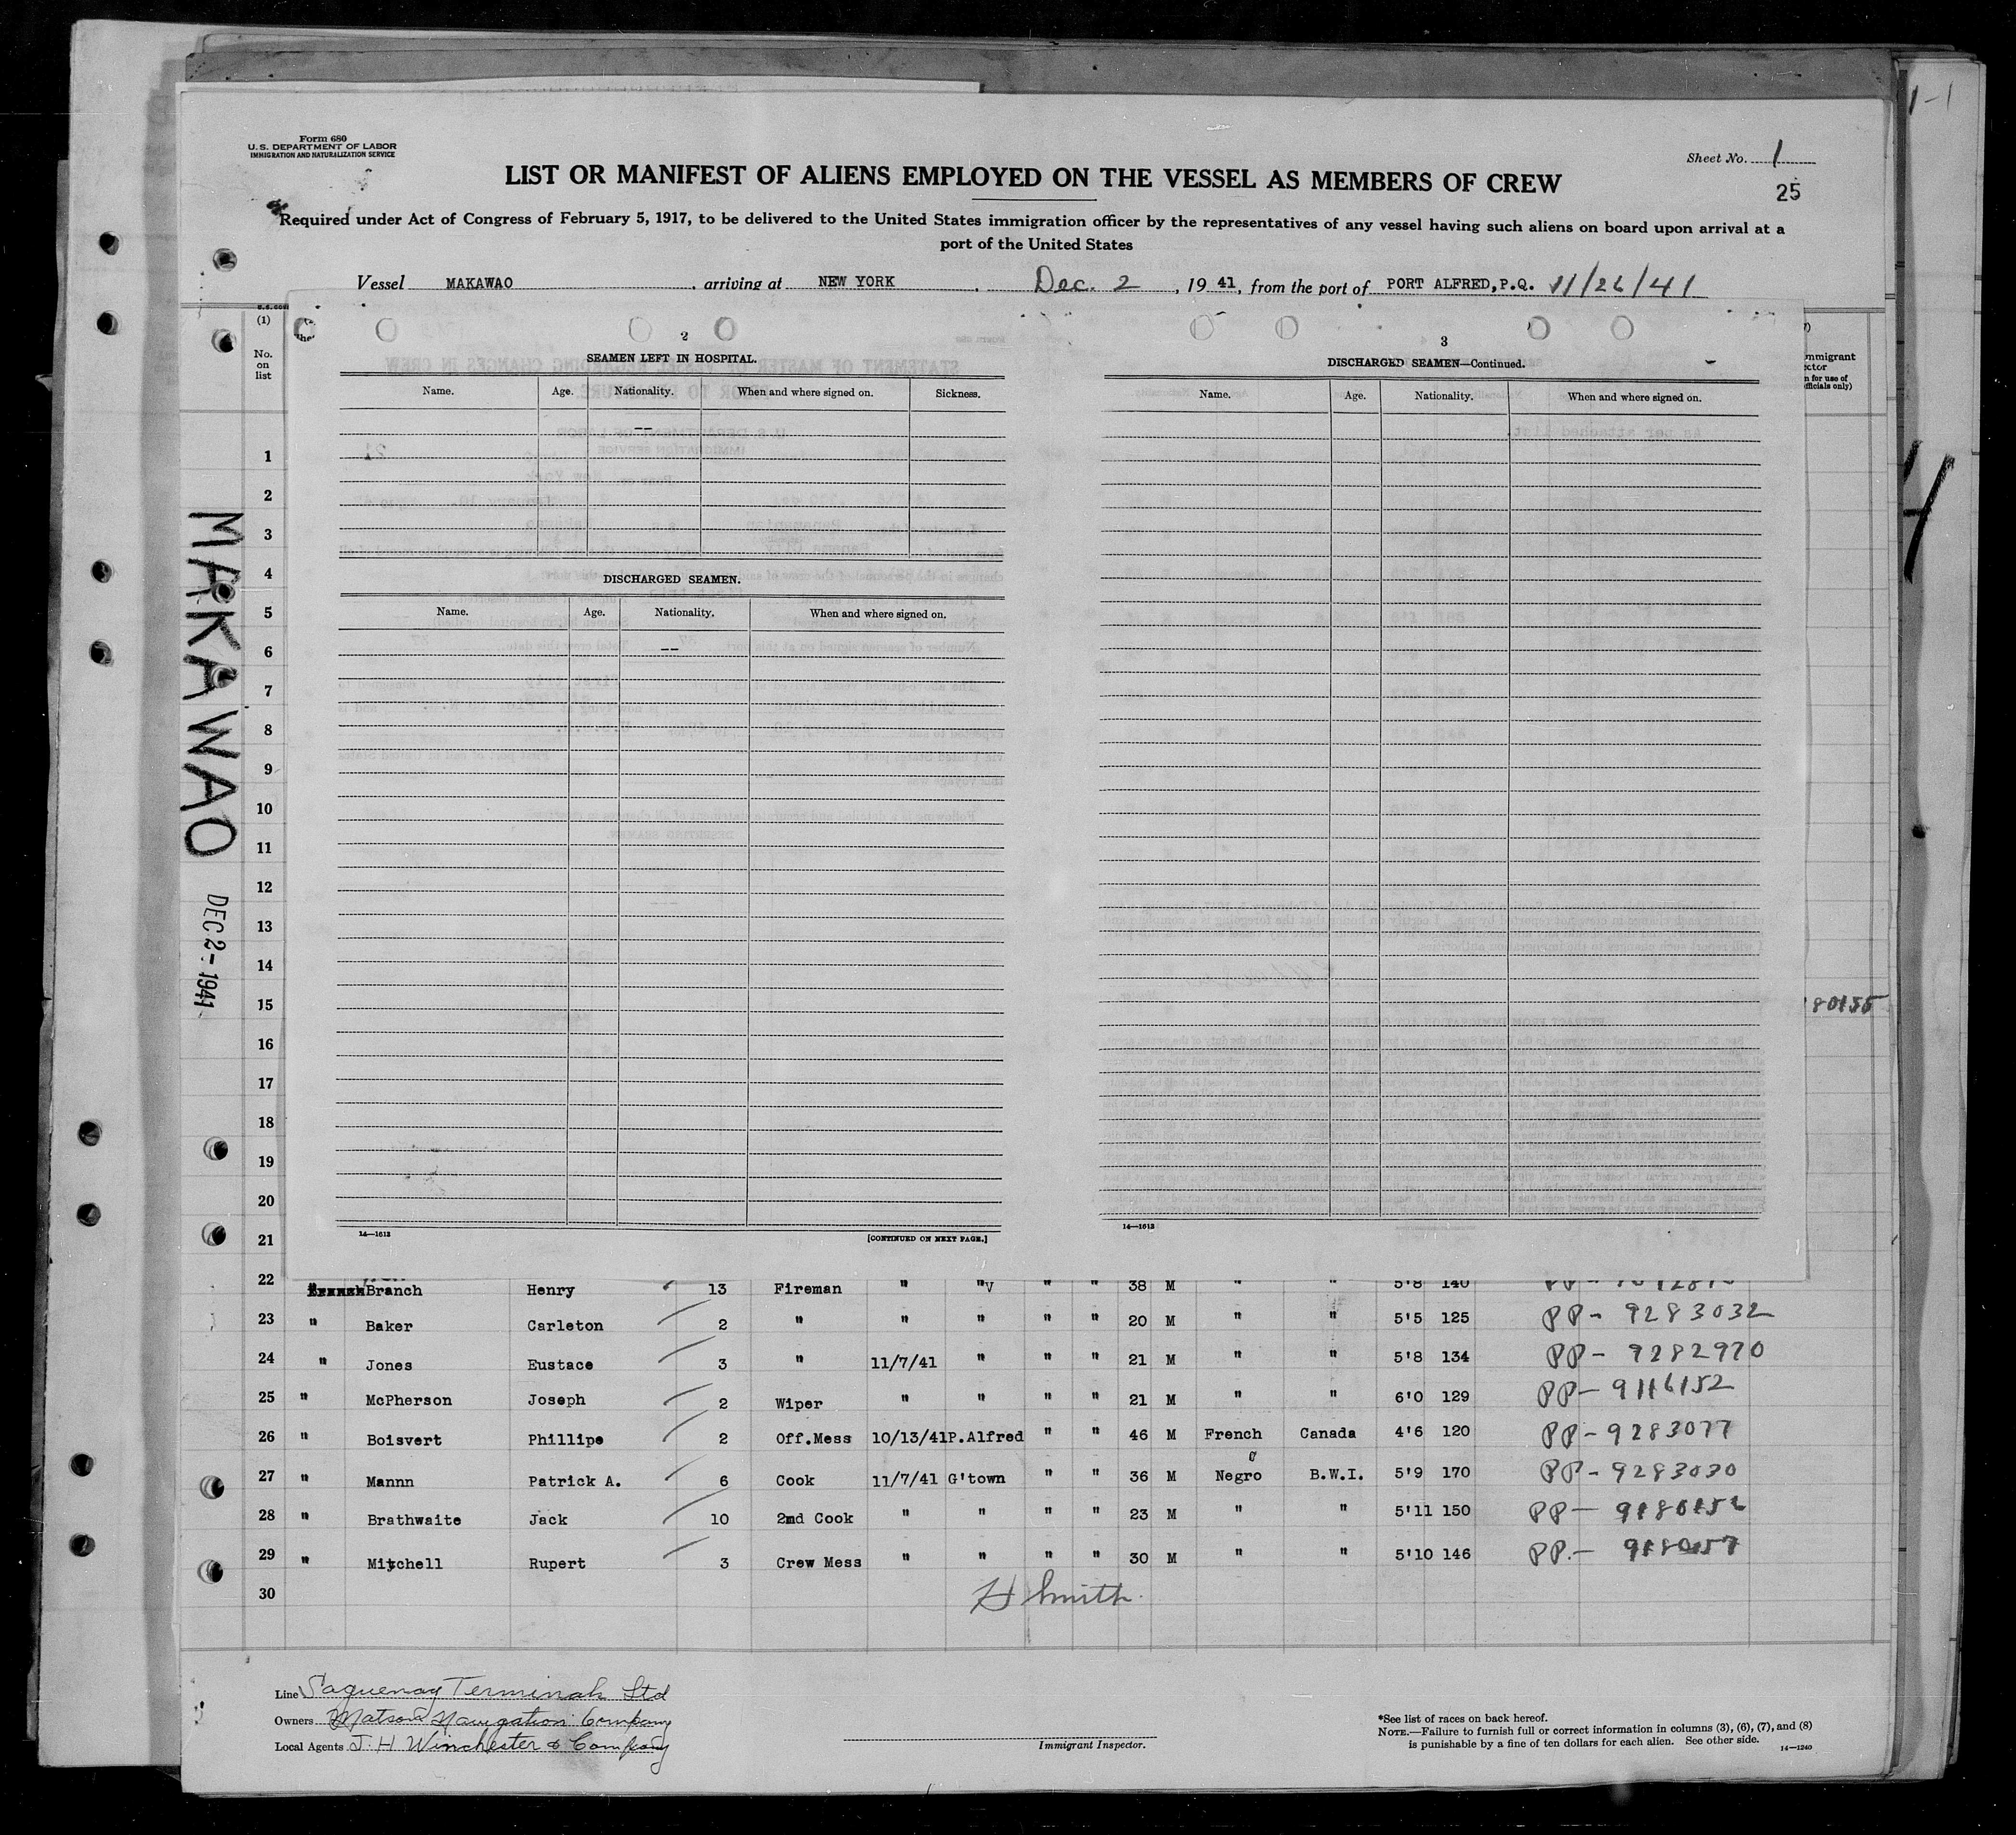 Form 680
U. S. DEPARTMENT OF LABOR
IMMIGRATION AND NATURALIZATION SERVICE
Sheet No. 1
25
LIST OR MANIFEST OF ALIENS EMPLOYED ON THE VESSEL AS MEMBERS OF CREW
Required under Act of Congress of February 5, 1917, to be delivered to the United States immigration officer by the representatives of any vessel having such aliens on board upon arrival at a
port of the United States
Vessel MAKAWAO , arriving at NEW YORK , Dec. 2 , 19 41, from the port of PORT ALFRED, P.Q. 11/26/41
(1)
No.
on
list
2
SEAMEN LEFT IN HOSPITAL.
Name. Age. Nationality. When and where signed on. Sickness.
--
DISCHARGED SEAMEN.
Name. Age. Nationality. When and where signed on.
--
14—1613 [CONTINUED ON NEXT PAGE.]
3
DISCHARGED SEAMEN—Continued.
Name. Age. Nationality. When and where signed on.
14—1613
1
2
3
4
5
6
7
8
9
10
11
12
13
14
15 80155
16
17
18
19
20
21
MAKAWAO DEC 2 - 1941
22 Branch Henry 13 Fireman " " " " 38 M " " 5'8 140
23 " Baker Carleton 2 " " " " " 20 M " " 5'5 125 PP - 9283032
24 " Jones Eustace 3 " 11/7/41 " " " 21 M " " 5'8 134 PP - 9282970
25 " McPherson Joseph 2 Wiper " " " " 21 M " " 6'0 129 PP - 9116152
26 " Boisvert Phillipe 2 Off.Mess 10/13/41 P.Alfred " " 46 M French Canada 4'6 120 PP - 9283077
27 " Mannn Patrick A. 6 Cook 11/7/41 G'town " " 36 M Negro B.W.I. 5'9 170 PP - 9283030
28 " Brathwaite Jack 10 2nd Cook " " " " 23 M " " 5'11 150 PP - 9180152
29 " Mitchell Rupert 3 Crew Mess " " " " 30 M " " 5'10 146 PP. - 9180157
30
H Smith
Line Saguenay Terminals Ltd
Owners Matson Navigation Company
Local Agents J. H Winchester & Company
Immigrant Inspector.
*See list of races on back hereof.
NOTE.—Failure to furnish full or correct information in columns (3), (6), (7), and (8)
is punishable by a fine of ten dollars for each alien. See other side. 14—1240